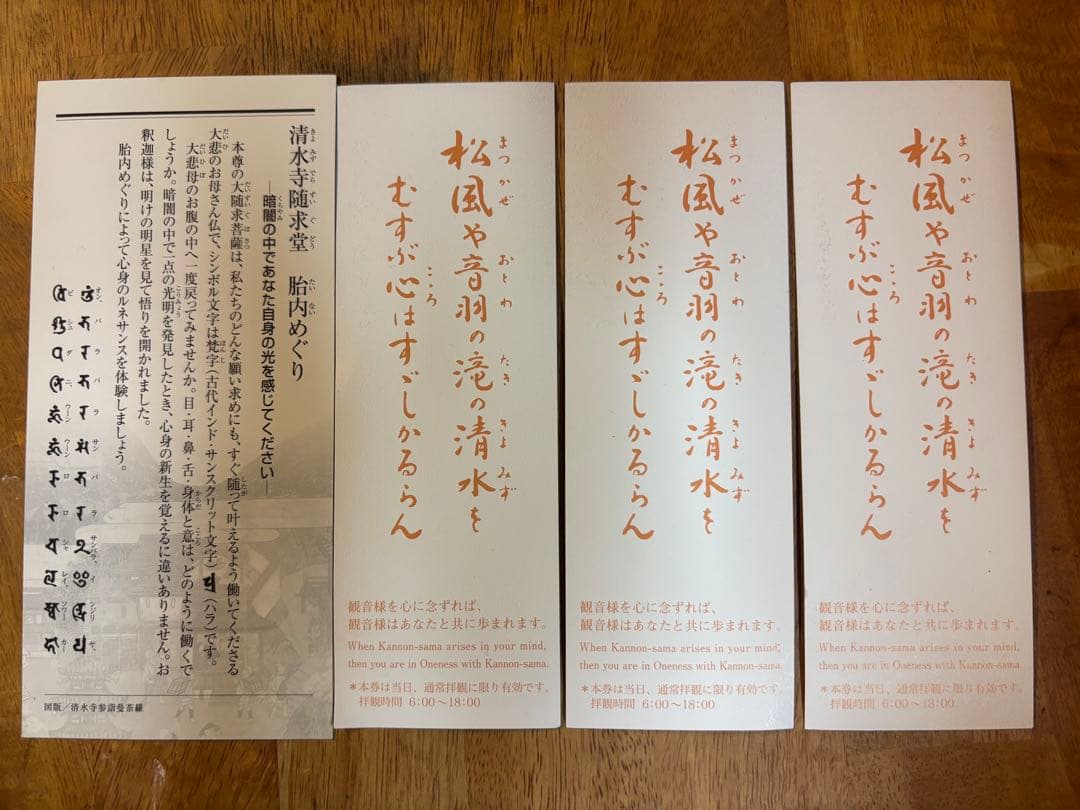 きよみずでらずいぐどう たいない
清水寺随求堂 胎内めぐり
くらやみ
―暗闇の中であなた自身の光を感じてください―
だいずいぐぼさつ したが
本尊の大随求菩薩は、私たちのどんな願い求めにも、すぐ随って叶えるよう働いてくださる
だいひ ぼんじ
大悲のお母さん仏で、シンボル文字は梵字(古代インド・サンスクリット文字)(ハラ)です。
だいひぼ からだ こころ
大悲母のお腹の中へ一度戻ってみませんか。目・耳・鼻・舌・身体と意は、どのように働くで
こうみょう
しょうか。暗闇の中で一点の光明を発見したとき、心身の新生を覚えるに違いありません。お
釈迦様は、明けの明星を見て悟りを開かれました。
胎内めぐりによって心身のルネサンスを体験しましょう。
オン、バラバラサンバラサンバラ、インヂリヤ、
ビシュダニ、ウーンウーンロロシャレイ、ソワーカ
図版／清水寺参詣曼荼羅
まつかぜ おとわ たき きよみず
松風や音羽の滝の清水を
こころ
むすぶ心はすゞしかるらん
観音様を心に念ずれば、
観音様はあなたと共に歩まれます。
When Kannon-sama arises in your mind,
then you are in Oneness with Kannon-sama.
＊本券は当日、通常拝観に限り有効です。
拝観時間 6:00〜18:00
まつかぜ おとわ たき きよみず
松風や音羽の滝の清水を
こころ
むすぶ心はすゞしかるらん
観音様を心に念ずれば、
観音様はあなたと共に歩まれます。
When Kannon-sama arises in your mind,
then you are in Oneness with Kannon-sama.
＊本券は当日、通常拝観に限り有効です。
拝観時間 6:00〜18:00
まつかぜ おとわ たき きよみず
松風や音羽の滝の清水を
こころ
むすぶ心はすゞしかるらん
観音様を心に念ずれば、
観音様はあなたと共に歩まれます。
When Kannon-sama arises in your mind,
then you are in Oneness with Kannon-sama.
＊本券は当日、通常拝観に限り有効です。
拝観時間 6:00〜18:00